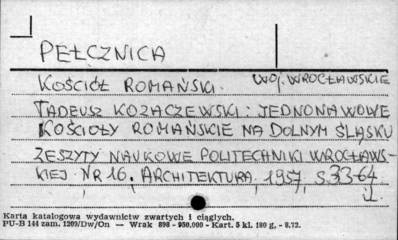 PEŁCZNICA
KOŚCIÓŁ ROMAŃSKI. WOJ. WROCŁAWSKIE
TADEUSZ KOZACZEWSKI: JEDNONAWOWE
KOŚCIOŁY ROMAŃSKIE NA DOLNYM ŚLĄSKU
ZESZYTY NAUKOWE POLITECHNIKI WROCŁAWS-
KIEJ. NR 16. ARCHITEKTURA. 1957, S. 33-64
Karta katalogowa wydawnictw zwartych i ciągłych.
PU-B 144 zam. 1209/Dw/On — Wrak 898 - 950.000 - Kart. 5 kl. 180 g, - 8.72.